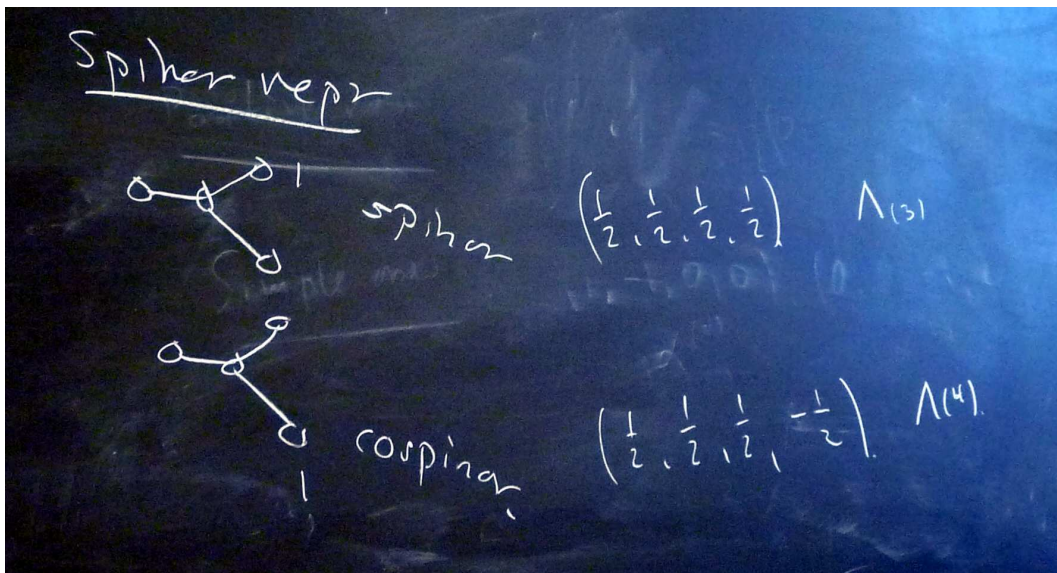 Spinor repr
1
spinor (1/2, 1/2, 1/2, 1/2) Λ(3)
cospinor (1/2, 1/2, 1/2, -1/2). Λ(4).
1